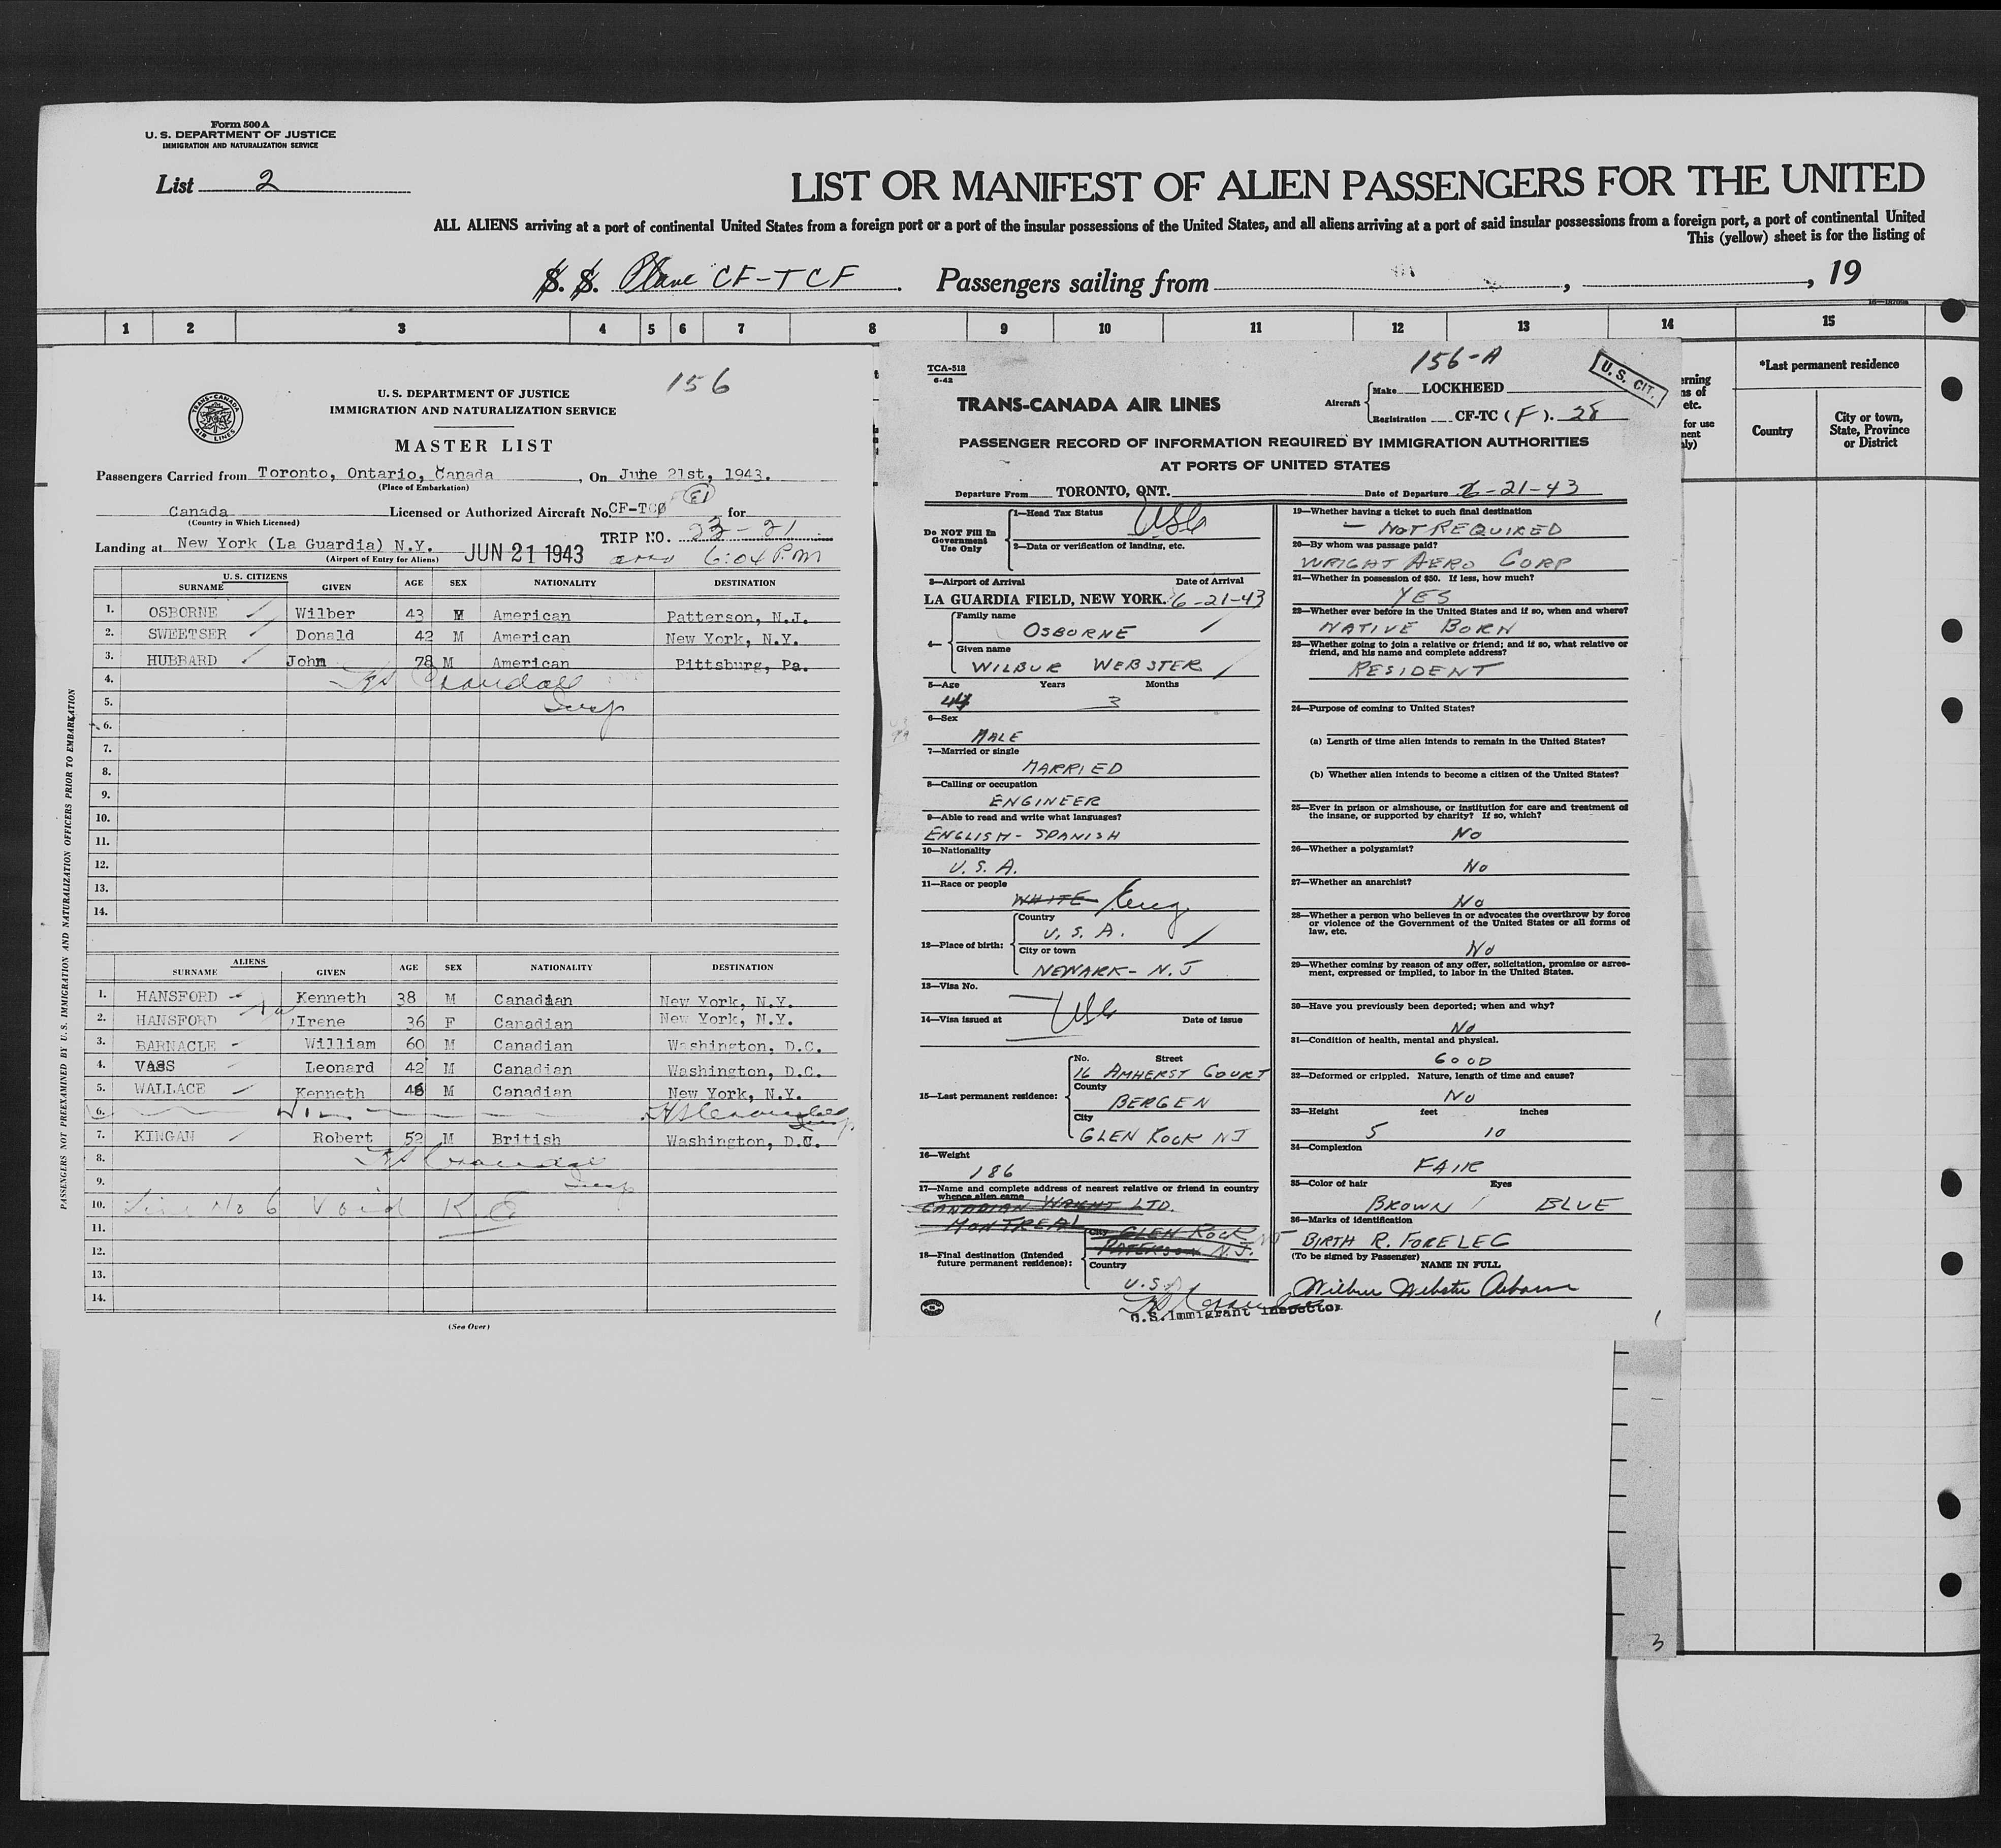 Form 500 A
U. S. DEPARTMENT OF JUSTICE
IMMIGRATION AND NATURALIZATION SERVICE
List 2
LIST OR MANIFEST OF ALIEN PASSENGERS FOR THE UNITED
ALL ALIENS arriving at a port of continental United States from a foreign port or a port of the insular possessions of the United States, and all aliens arriving at a port of said insular possessions from a foreign port, a port of continental United
This (yellow) sheet is for the listing of
S. S. Plane CF-TCF . Passengers sailing from , , 19
1 2 3 4 5 6 7 8 9 10 11 12 13 14 15
156
TRANS-CANADA AIR LINES
U. S. DEPARTMENT OF JUSTICE
IMMIGRATION AND NATURALIZATION SERVICE
MASTER LIST
Passengers Carried from Toronto, Ontario, Canada, On June 21st, 1943.
(Place of Embarkation)
Canada Licensed or Authorized Aircraft No. CF-TC for
(Country in Which Licensed)
TRIP NO. 23-21
Landing at New York (La Guardia) N.Y. JUN 21 1943 6:04 PM
(Airport of Entry for Aliens)
U. S. CITIZENS
SURNAME GIVEN AGE SEX NATIONALITY DESTINATION
1. OSBORNE Wilber 43 M American Patterson, N.J.
2. SWEETSER Donald 42 M American New York, N.Y.
3. HUBBARD John 78 M American Pittsburg, Pa.
4. Crandall
5. Insp
6.
7.
8.
9.
10.
11.
12.
13.
14.
ALIENS
SURNAME GIVEN AGE SEX NATIONALITY DESTINATION
1. HANSFORD Kenneth 38 M Canadian New York, N.Y.
2. HANSFORD Irene 36 F Canadian New York, N.Y.
3. BARNACLE William 60 M Canadian Washington, D.C.
4. VASS Leonard 42 M Canadian Washington, D.C.
5. WALLACE Kenneth 46 M Canadian New York, N.Y.
6.
7. KINGAN Robert 52 M British Washington, D.C.
8. Crandall
9. Insp
10. Line No 6 Void
11.
12.
13.
14.
(See Over)
PASSENGERS NOT PREEXAMINED BY U.S. IMMIGRATION AND NATURALIZATION OFFICERS PRIOR TO EMBARKATION
TCA-518
6-42
156-A
U. S. CIT.
TRANS-CANADA AIR LINES
Aircraft
Make LOCKHEED
Registration CF-TC (F). 28
PASSENGER RECORD OF INFORMATION REQUIRED BY IMMIGRATION AUTHORITIES
AT PORTS OF UNITED STATES
Departure From TORONTO, ONT. Date of Departure 6-21-43
Do NOT Fill In Government Use Only
1—Head Tax Status USC
2—Data or verification of landing, etc.
3—Airport of Arrival Date of Arrival
LA GUARDIA FIELD, NEW YORK. 6-21-43
4—
Family name
OSBORNE
Given name
WILBUR WEBSTER
5—Age Years Months
3
6—Sex
MALE
7—Married or single
MARRIED
8—Calling or occupation
ENGINEER
9—Able to read and write what languages?
ENGLISH - SPANISH
10—Nationality
U. S. A.
11—Race or people
WHITE Eng.
12—Place of birth:
Country
U. S. A.
City or town
NEWARK - N. J
13—Visa No.
USC
14—Visa issued at Date of issue
15—Last permanent residence:
No. Street
16 AMHERST COURT
County
BERGEN
City
GLEN ROCK NJ
16—Weight
186
17—Name and complete address of nearest relative or friend in country
whence alien came
CANADIAN WRIGHT LTD.
MONTREAL
18—Final destination (Intended
future permanent residence):
City GLEN ROCK NJ
PATERSON N. J.
Country
U. S. A
U.S. Immigrant Inspector
19—Whether having a ticket to such final destination
— NOT REQUIRED
20—By whom was passage paid?
WRIGHT AERO CORP
21—Whether in possession of $50. If less, how much?
YES
22—Whether ever before in the United States and if so, when and where?
NATIVE BORN
23—Whether going to join a relative or friend; and if so, what relative or
friend, and his name and complete address?
RESIDENT
24—Purpose of coming to United States?
(a) Length of time alien intends to remain in the United States?
(b) Whether alien intends to become a citizen of the United States?
25—Ever in prison or almshouse, or institution for care and treatment of
the insane, or supported by charity? If so, which?
No
26—Whether a polygamist?
No
27—Whether an anarchist?
No
28—Whether a person who believes in or advocates the overthrow by force
or violence of the Government of the United States or all forms of
law, etc.
No
29—Whether coming by reason of any offer, solicitation, promise or agree-
ment, expressed or implied, to labor in the United States.
30—Have you previously been deported; when and why?
No
31—Condition of health, mental and physical.
GOOD
32—Deformed or crippled. Nature, length of time and cause?
No
33—Height feet inches
5 10
34—Complexion
FAIR
35—Color of hair Eyes
BROWN BLUE
36—Marks of identification
BIRTH R. FORELEG
(To be signed by Passenger) NAME IN FULL
Wilbur Webster Osborne
*Last permanent residence
Country
City or town,
State, Province
or District
3